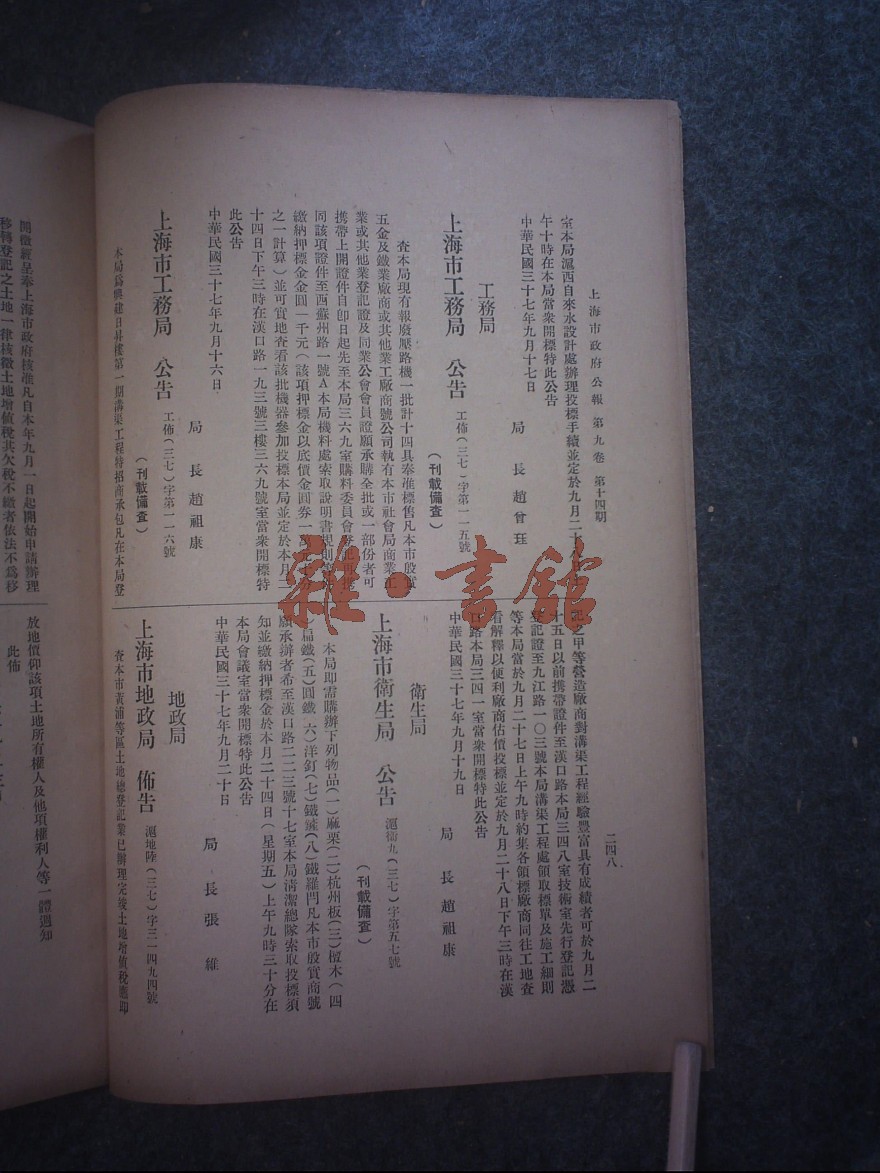 上海市政府公報 第九卷 第十四期
二四八
室本局滬西自來水設計處辦理投標手續並定於九月二十
午十時在本局當衆開標特此公告
中華民國三十七年九月十七日
局 長 趙曾玨
工務局
上海市工務局 公告 工佈(三七)字第一一五號
(刊載備查)
查本局現有報廢壓路機一批計十四具奉准標售凡本市殷實
五金及鐵業廠商或其他業工廠商號公司執有本市社會局商業
業或其他業登記證及同業公會會員證願承購全批或一部份者可
携帶上開證件自卽日起先至本局三六九室購料委員會
同該項證件至西蘇州路一號A本局機料處索取說明書規則
繳納押標金金圓一千元(該項押標金以底價金圓券一萬
之一計算)並可實地查看該批機器參加投標本局並定於本月二
十四日下午三時在漢口路一九三號三樓三六九號室當衆開標特
此公告
中華民國三十七年九月十六日
局 長 趙祖康
上海市工務局 公告 工佈(三七)字第一一六號
(刊載備查)
本局爲興建日昇樓第一期溝渠工程特招商承包凡在本局登
記之甲等營造廠商對溝渠工程經驗豐富具有成績者可於九月二
十五日以前携帶證件至漢口路本局三四八室技術室先行登記憑
登記證至九江路一〇三號本局溝渠工程處領取標單及施工細則
等本局當於九月二十七日上午九時約集各領標廠商同往工地查
看解釋以便利廠商估價投標並定於九月二十八日下午三時在漢
口路本局三四一室當衆開標特此公告
中華民國三十七年九月十九日
局 長 趙祖康
衛生局
上海市衛生局 公告 滬衛九(三七)字第五七號
(刊載備查)
本局卽需購辦下列物品(一)麻栗(二)杭州板(三)檀木(四
)扁鐵(五)圓鐵(六)洋釘(七)鐵鏟(八)鐵羅門凡本市殷實商號
願承辦者希至漢口路二二三號十七室本局清潔總隊索取投標須
知並繳納押標金於本月二十四日(星期五)上午九時三十分在
本局會議室當衆開標特此公告
中華民國三十七年九月二十日
局 長 張 維
地政局
上海市地政局 佈告 滬地陸(三七)字三一四九四號
查本市黃浦等區土地總登記業已辦理完竣土地增值稅應卽
開徵經呈奉上海市政府核准凡自本年九月一日起開始申請辦理
移轉登記之土地一律核徵土地增值稅其欠稅不繳者依法不爲移
放地價仰該項土地所有權人及他項權利人等一體週知
此佈
雜·書館